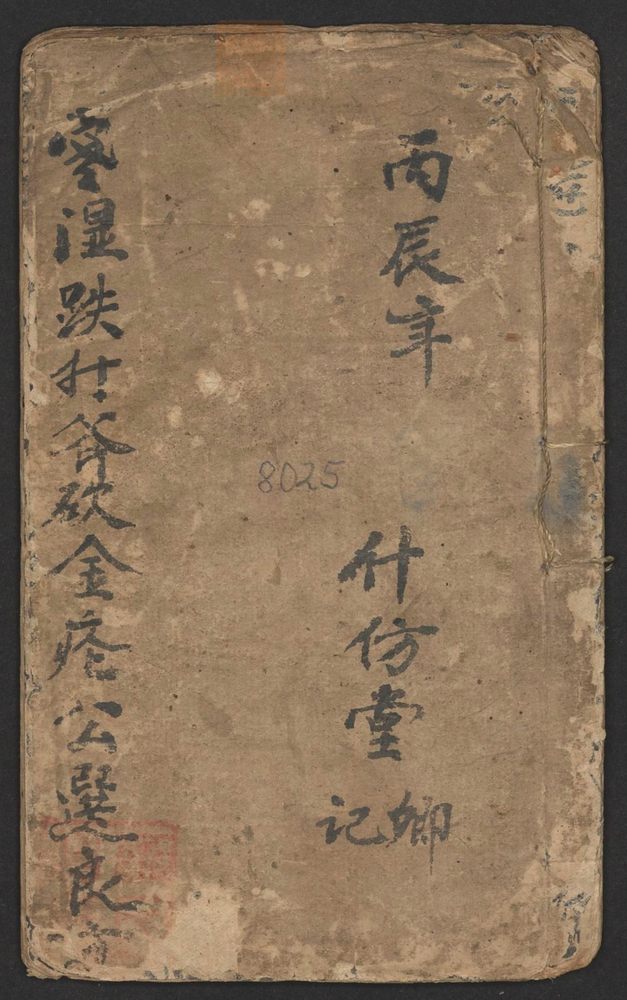 丙辰年
什仿堂
卿記
8025
寒湿跌打斧砍金疮公選良方